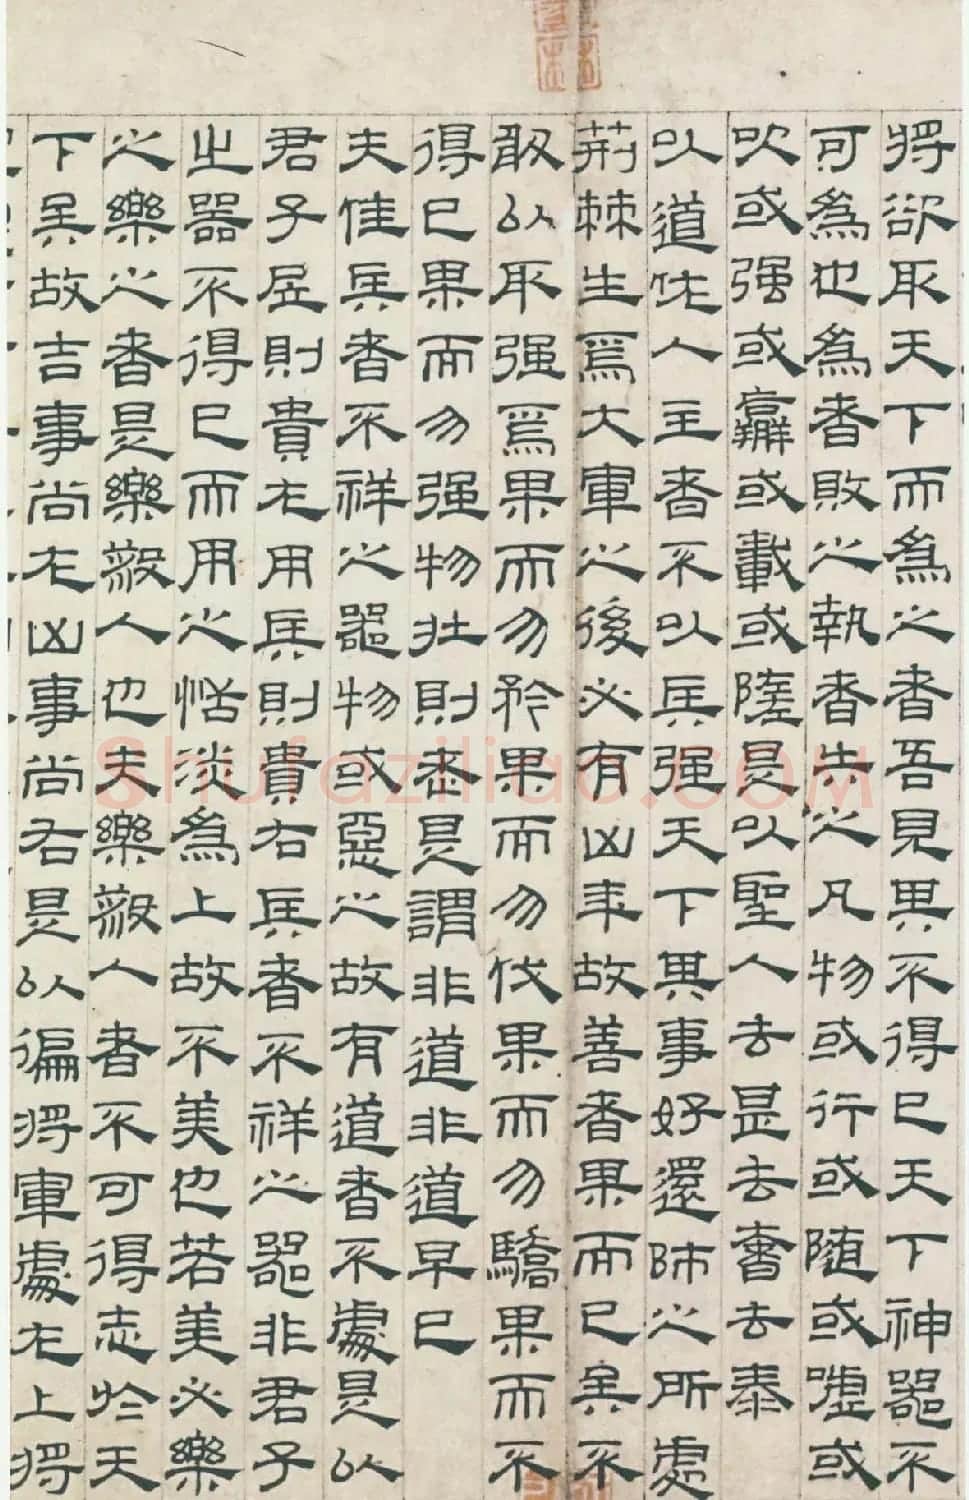 将欲取天下而為之者吾見其不得已天下神器不
可為也為者敗之執者失之凡物或行或随或嘘或
吹或强或羸或載或隳是以聖人去甚去奢去泰
以道佐人主者不以兵强天下其事好還師之所處
荆棘生焉大軍之後必有凶年故善者果而已矣不
敢以取强焉果而勿矜果而勿伐果而勿驕果而不
得已果而勿强物壯則老是謂非道非道早已
夫佳兵者不祥之器物或惡之故有道者不處是以
君子居則貴左用兵則貴右兵者不祥之器非君子
之器不得已而用之恬淡為上故不美也若美必樂
之樂之者是樂殺人也夫樂殺人者不可得志於天
下矣故吉事尚左凶事尚右是以偏将軍處左上将
shufaziliao.com